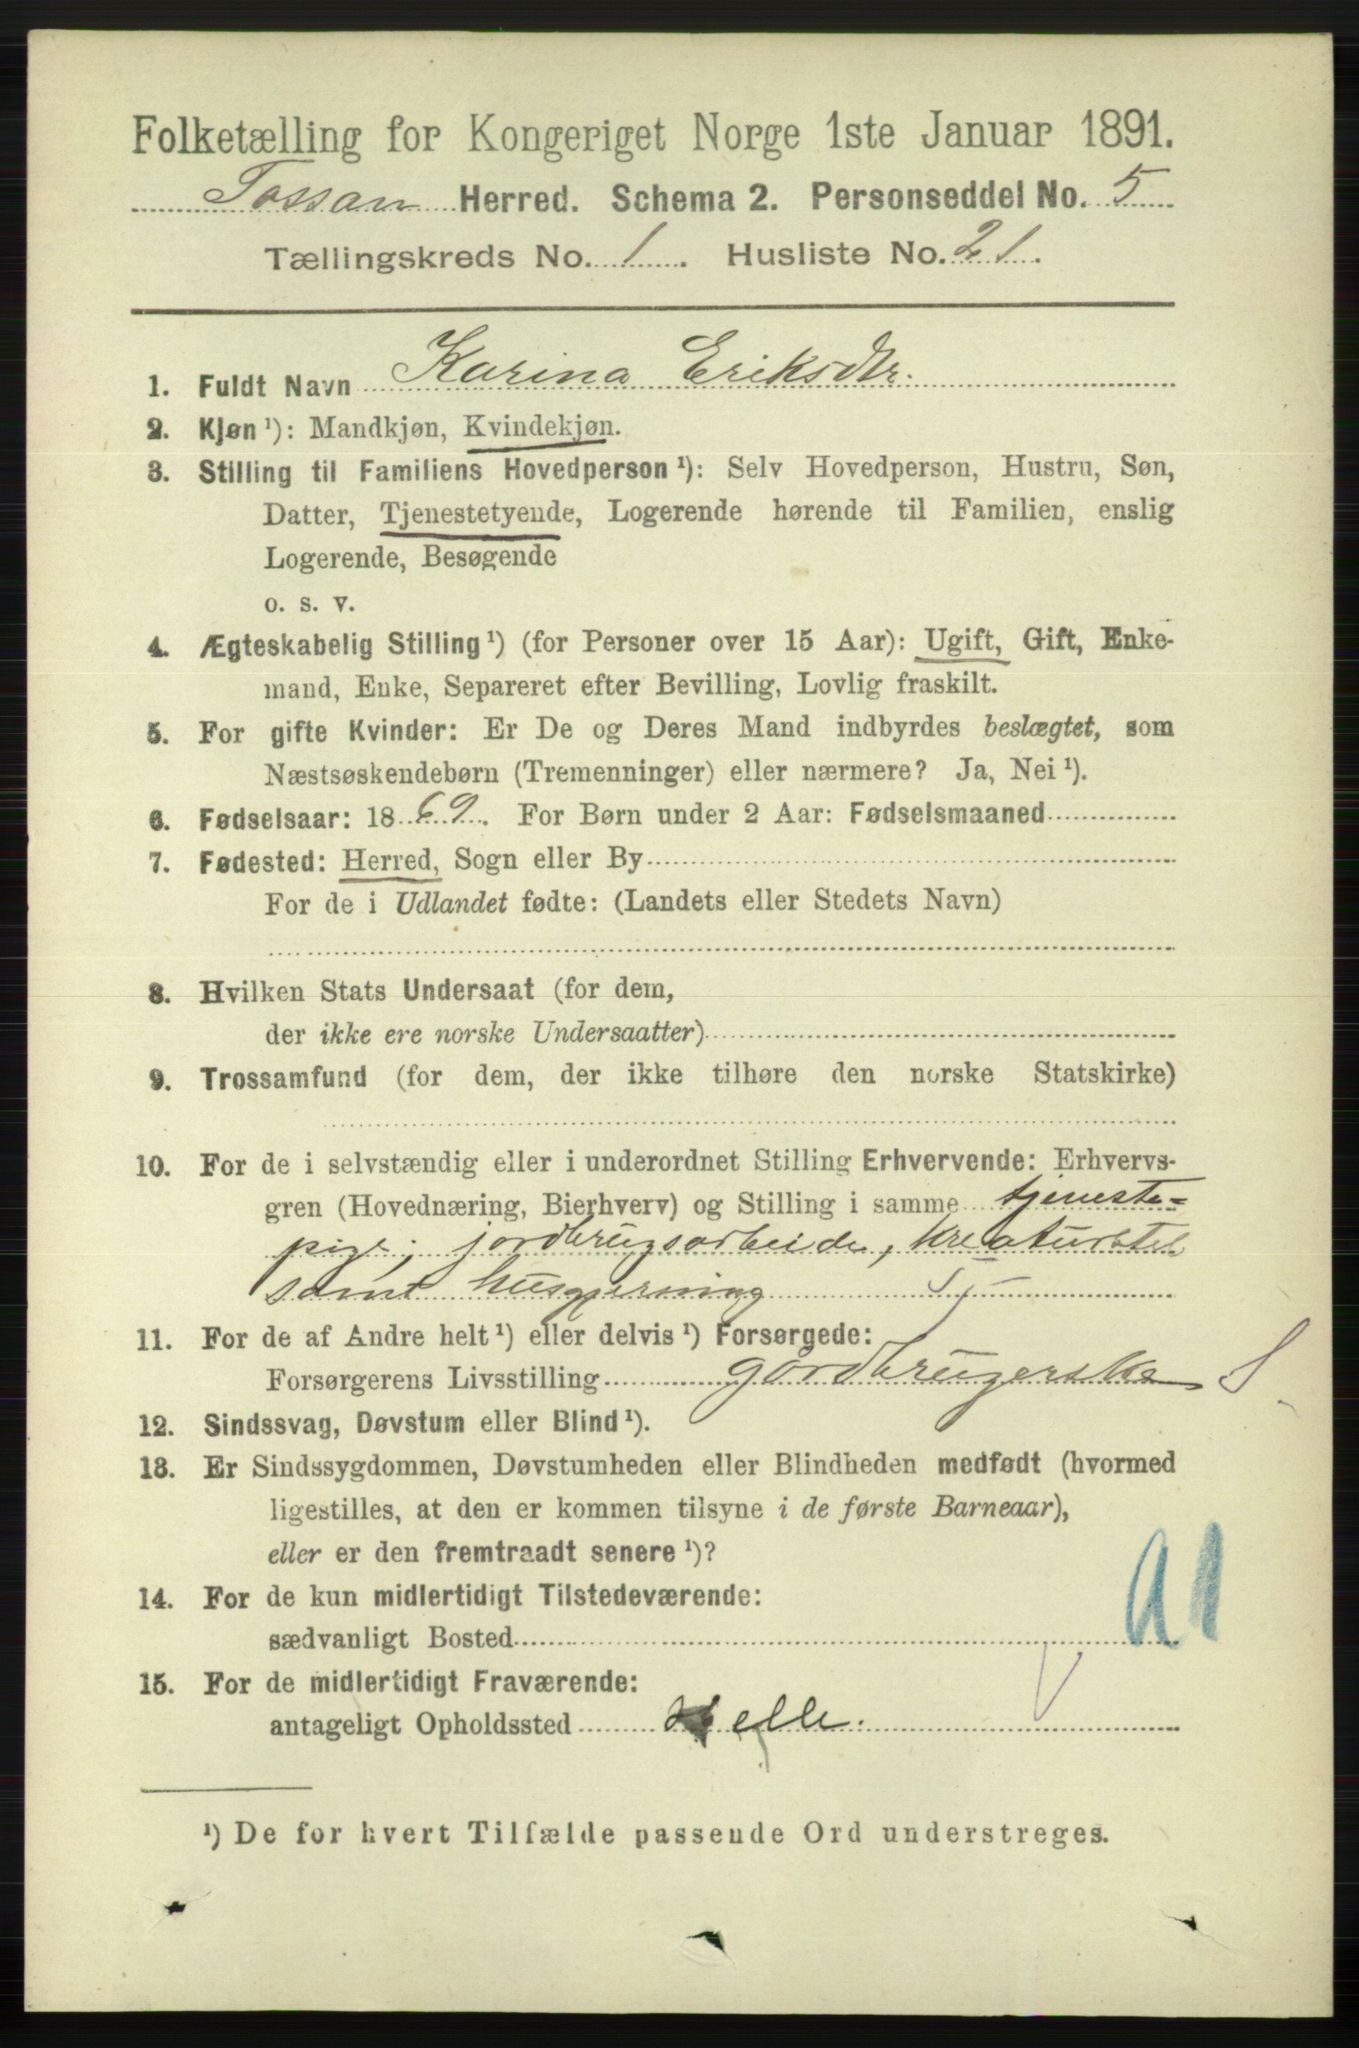 Folketælling for Kongeriget Norge 1ste Januar 1891.
Fossan Herred. Schema 2. Personseddel No. 5
Tællingskreds No. 1. Husliste No. 21.
1. Fuldt Navn Karina Eriksdtr.
2. Kjøn ¹): Mandkjøn, Kvindekjøn.
3. Stilling til Familiens Hovedperson ¹): Selv Hovedperson, Hustru, Søn,
Datter, Tjenestetyende, Logerende hørende til Familien, enslig
Logerende, Besøgende
o. s. v.
4. Ægteskabelig Stilling ¹) (for Personer over 15 Aar): Ugift, Gift, Enke-
mand, Enke, Separeret efter Bevilling, Lovlig fraskilt.
5. For gifte Kvinder: Er De og Deres Mand indbyrdes beslægtet, som
Næstsøskendebørn (Tremenninger) eller nærmere? Ja, Nei ¹).
6. Fødselsaar: 1869. For Børn under 2 Aar: Fødselsmaaned
7. Fødested: Herred, Sogn eller By
For de i Udlandet fødte: (Landets eller Stedets Navn)
8. Hvilken Stats Undersaat (for dem,
der ikke ere norske Undersaatter)
9. Trossamfund (for dem, der ikke tilhøre den norske Statskirke)
10. For de i selvstændig eller i underordnet Stilling Erhvervende: Erhvervs-
gren (Hovednæring, Bierhverv) og Stilling i samme tjeneste-
pige; jordbrugsarbeide, kreaturstel
samt husgjerning
11. For de af Andre helt ¹) eller delvis ¹) Forsørgede:
Forsørgerens Livsstilling gårdbrugerske S
12. Sindssvag, Døvstum eller Blind ¹).
13. Er Sindssygdommen, Døvstumheden eller Blindheden medfødt (hvormed
ligestilles, at den er kommen tilsyne i de første Barneaar),
eller er den fremtraadt senere ¹)?
14. For de kun midlertidigt Tilstedeværende:
sædvanligt Bosted
15. For de midlertidigt Fraværende:
antageligt Opholdssted Helle.
¹) De for hvert Tilfælde passende Ord understreges.